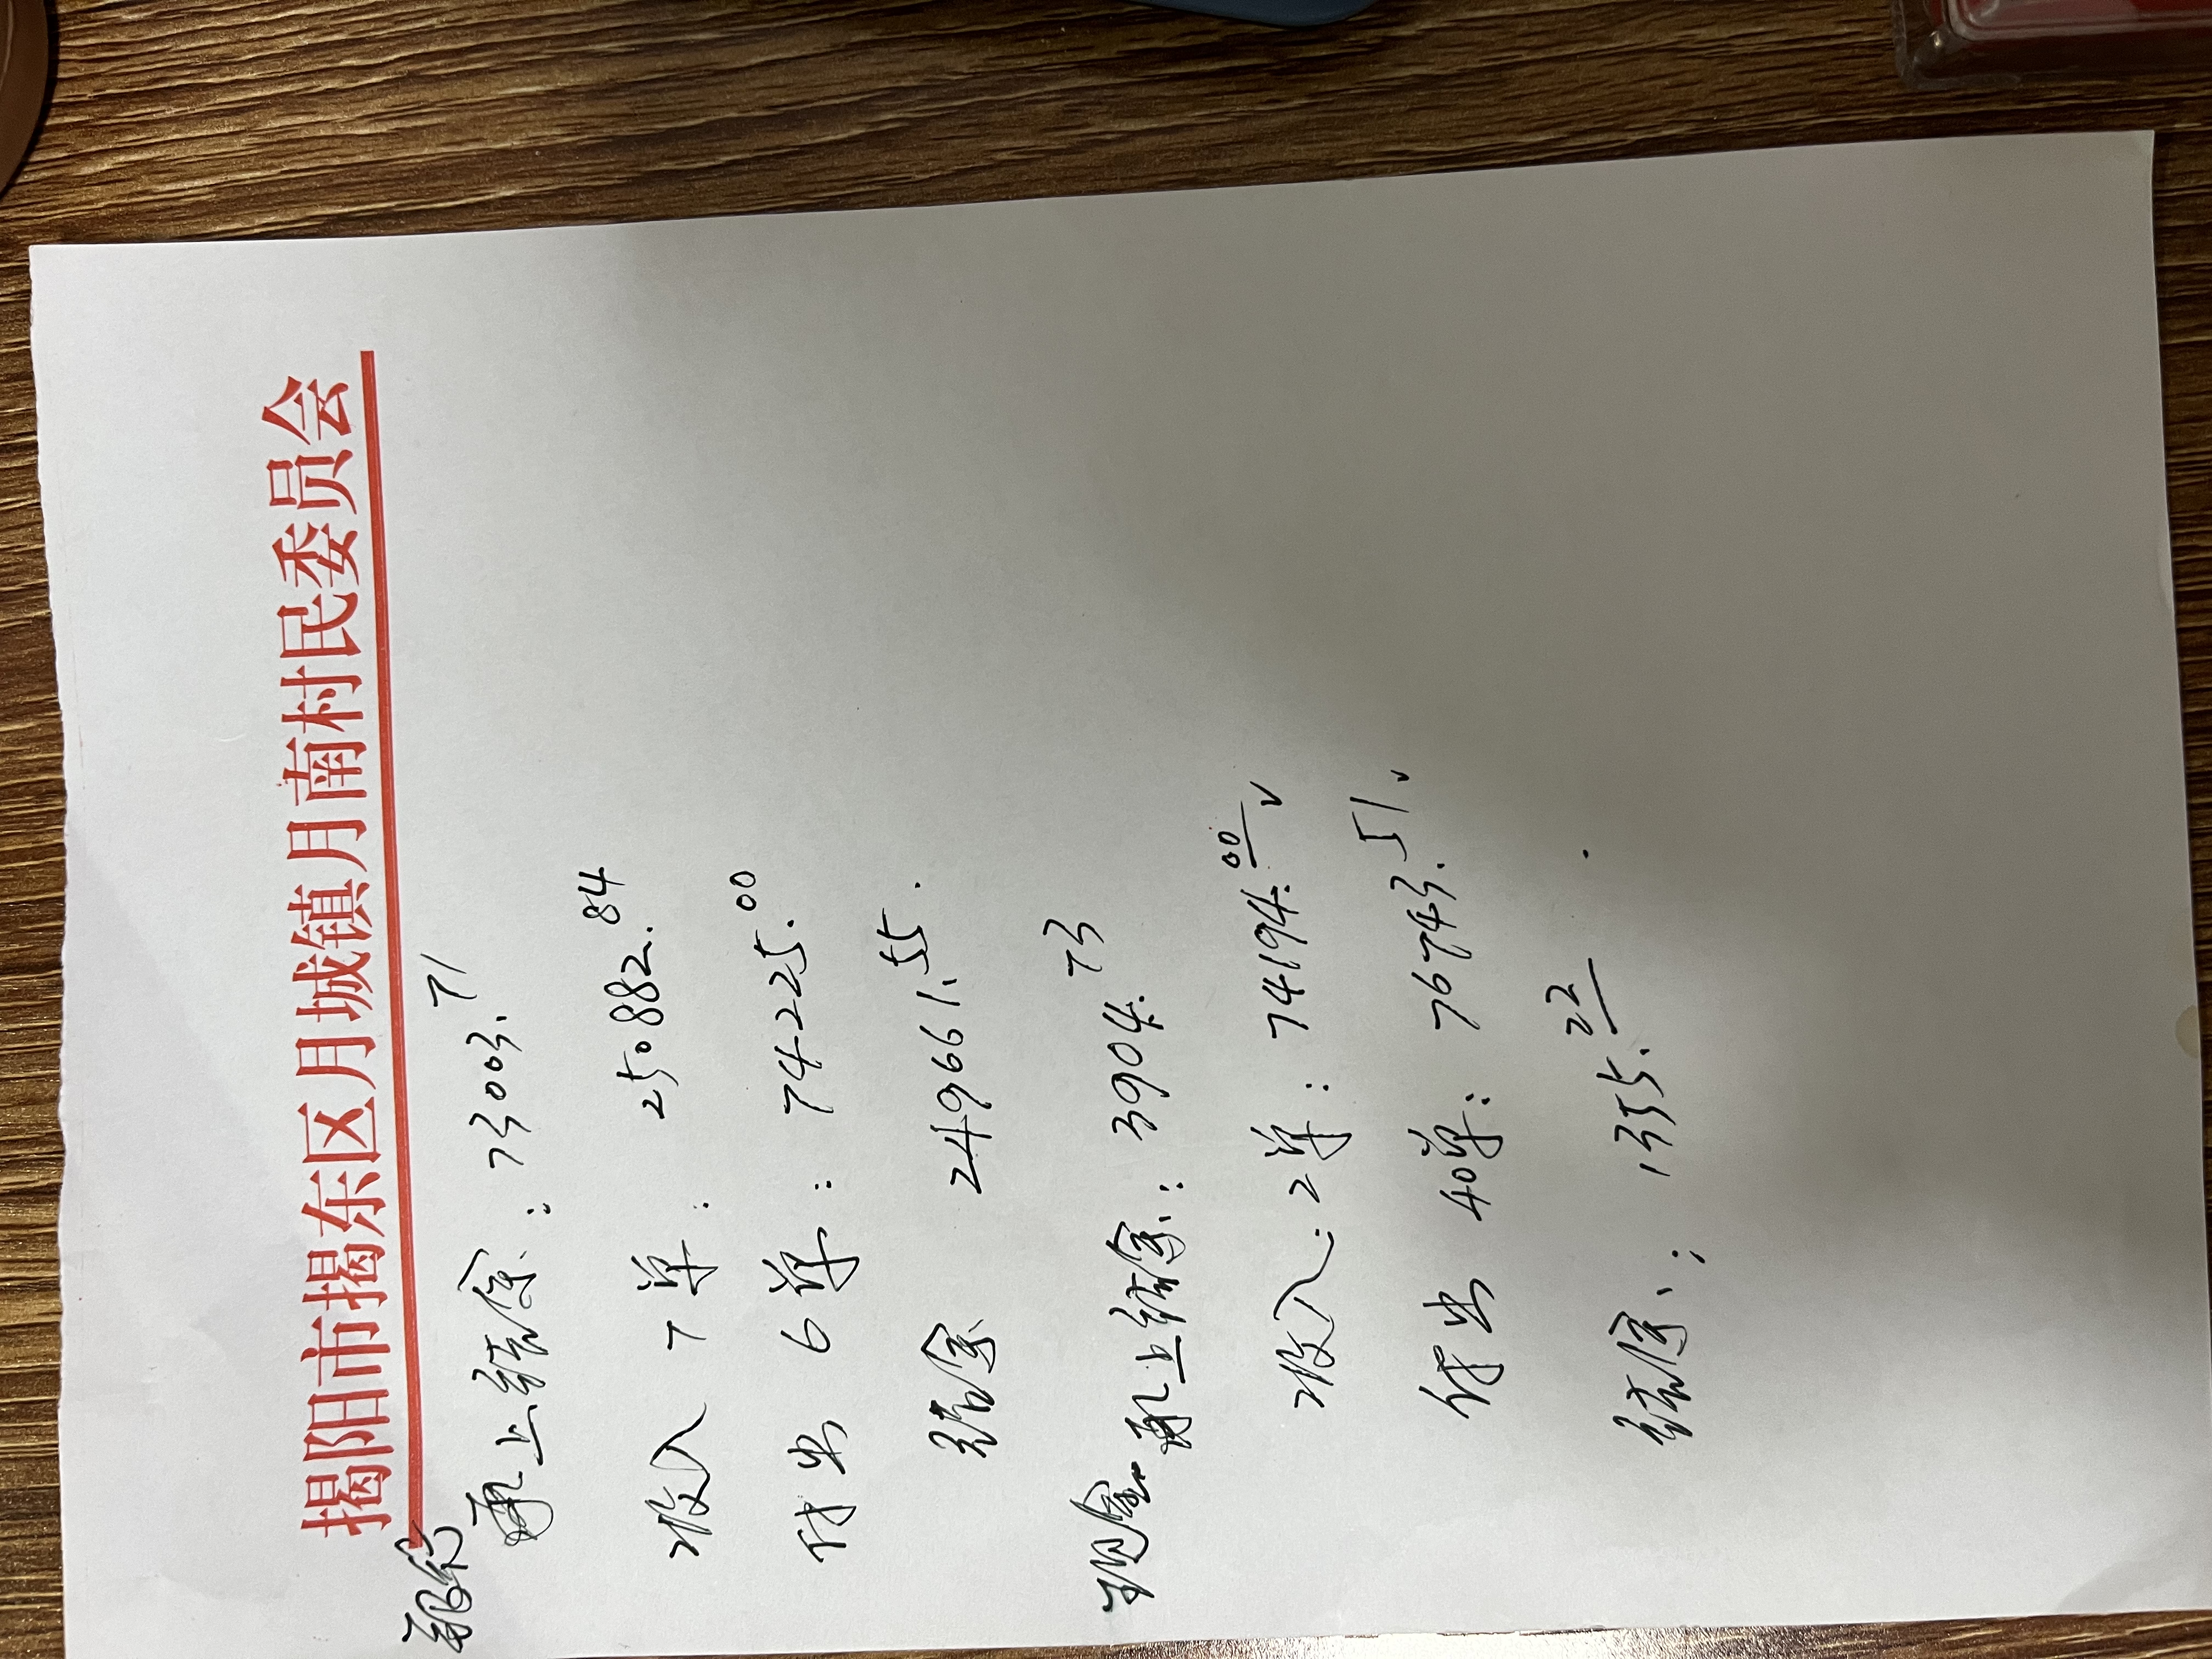 揭阳市揭东区月城镇月南村民委员会
银行
承上结余:73003.71
收入7单:250882.84
付出6单:74225.00
结余 249661.55.
现金 承上结余:3904.73
收入:2单:74194.00 √
付出40单:76743.51. √
结余:1355.22